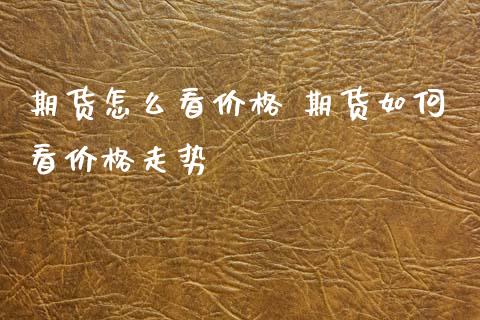 期货怎么看价格 期货如何
看价格走势